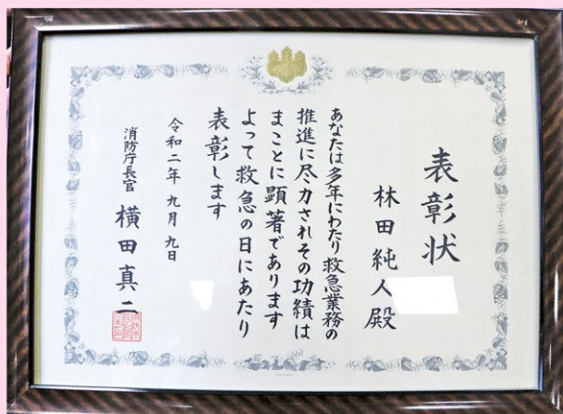 表彰状
林田純人殿
あなたは多年にわたり救急業務の
推進に尽力されその功績は
まことに顕著であります
よって救急の日にあたり
表彰します
令和二年九月九日
消防庁長官 横田真二